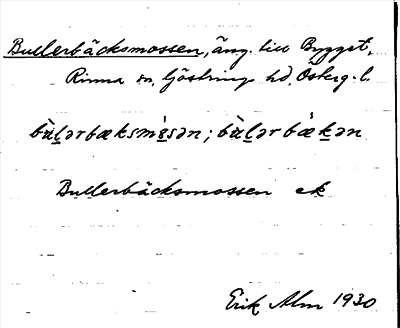 Bullerbäcksmossen, äng. till Bygget,
Rinna sn. Göstring hd. Österg. l.
bùl̲ərbæksmὸsən; bùl̲ərbὰk̲ən
Bullerbäcksmossen ek
Erik Alm 1930